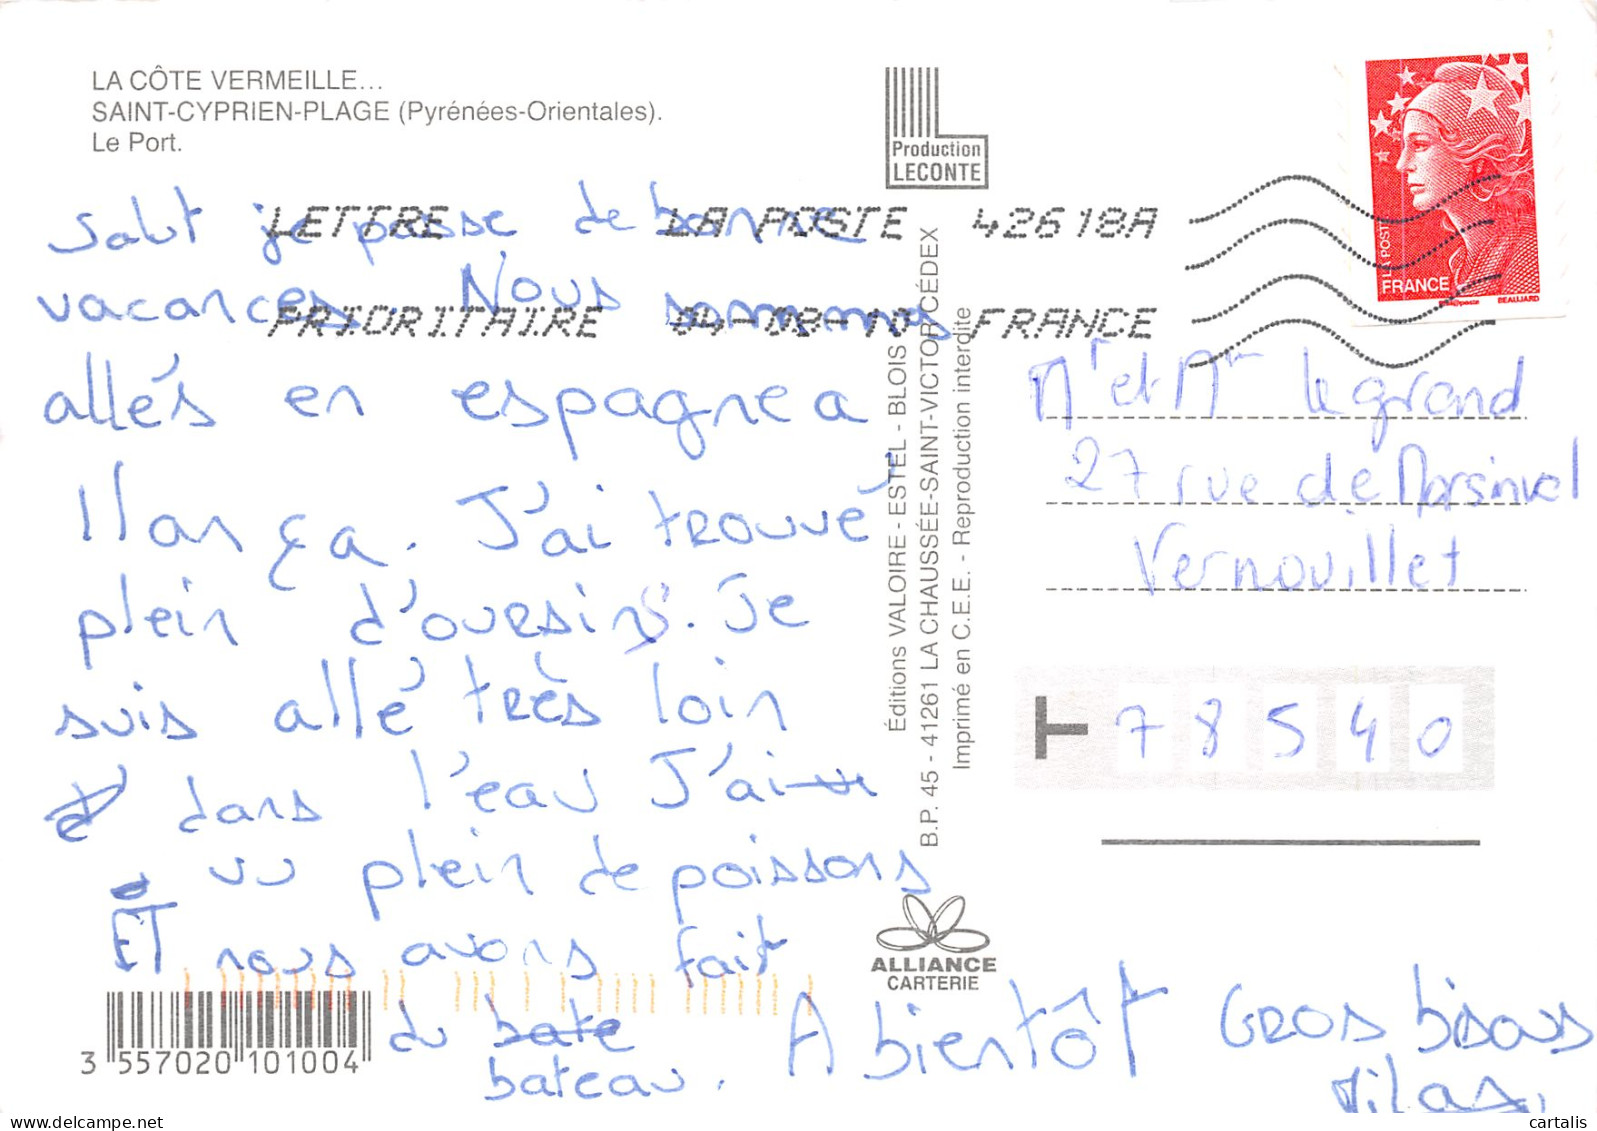 LA CÔTE VERMEILLE...
SAINT-CYPRIEN-PLAGE (Pyrénées-Orientales).
Le Port.
Production
LECONTE
LA POSTE
FRANCE
BEAUJARD
LETTRE LA POSTE 42618A
PRIORITAIRE 04-08-10 FRANCE
Salut je passe de bonne
vacances. Nous sommes
allés en espagne a
Llança. J'ai trouvé
plein d'oursins. Je
suis allé très loin
dans l'eau J'ai
vu plein de poissons
ET nous avons fait
du bate
bateau. A bientôt Gros bisous
Éditions VALOIRE-ESTEL - BLOIS
B.P. 45 - 41261 LA CHAUSSÉE-SAINT-VICTOR CÉDEX
Imprimé en C.E.E. - Reproduction interdite
Mr et Mm legrand
27 rue de Marsinval
Vernouillet
T 78540
ALLIANCE
CARTERIE
3 557020 101004
delcampe.net
cartalis